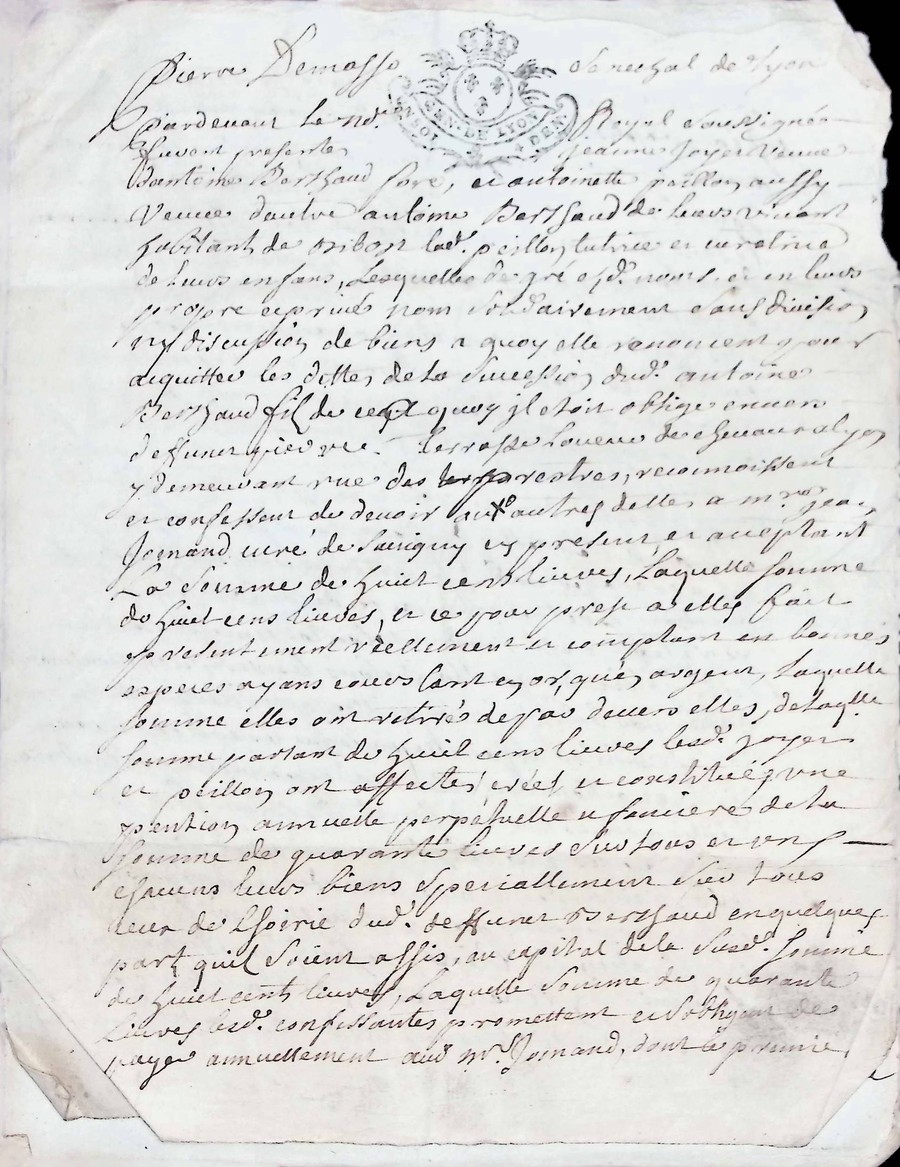 Pierre Demasso Senechal de Lyon
GEN. DE LYON
Pardevant le nore. Royal soussigné
furent presente jeanne Joyer veuve
d'antoine Berthaud foré, et antoinette peillon aussy
veuve d'autre antoine Berthaud de leurs vivant
habitant de lad. peillon tutrice et curatrice
de leurs enfans, Lesquelles de gré esd. noms, et en leurs
propre et privé nom solidairement sans division
ny discussion de biens a quoy elle renoncent pour
aiquitter les dettes de la succession dud. antoine
Berthaud fil de quoy jl etoit obligé enver
deffunct pierre terrasse Loueur de chevaux a lyon
y demeurant rue des prestres, reconnoissent
et confessent de devoir aux autres dettes a mre jean
Jomand curé de Savigny cy present, et aceptant
La somme de huict cens livres, Laquelle somme
de huict cens livres, et ce pour prest a elles fait
presentement réellement et comptant en bonnes
especes ayans cours tant en or, qu'en argent, Laquelle
somme elles ont retirés de par devers elles, de laqlle
somme partant de huict cens livres lesd. joyer
et peillon ont affectés, créés, et constitués une
pention annuelle perpetuelle et fonciere de la
somme de quarante livres sur tous et uns
chacuns leurs biens speciallement sur tous
ceux de l'hoirie dud. deffunct Berthaud en quelques
part quil soient assis, au capital de la susd. somme
de huict cents livres, Laquelle somme de quarante
Livres lesd. confessantes promettent et s'obligent de
payer annuellement aud mre Jomand, dont le premie